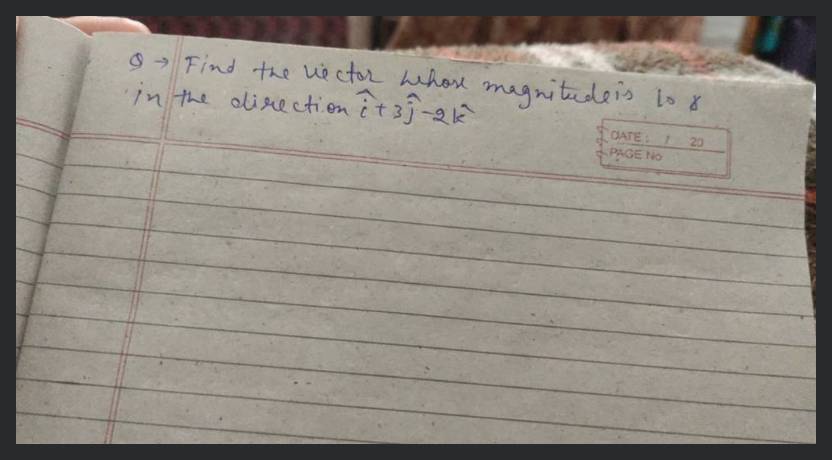 Q → Find the vector whose magnitude is 10 &
in the direction î+3ĵ-2k̂
DATE: / 20
PAGE No